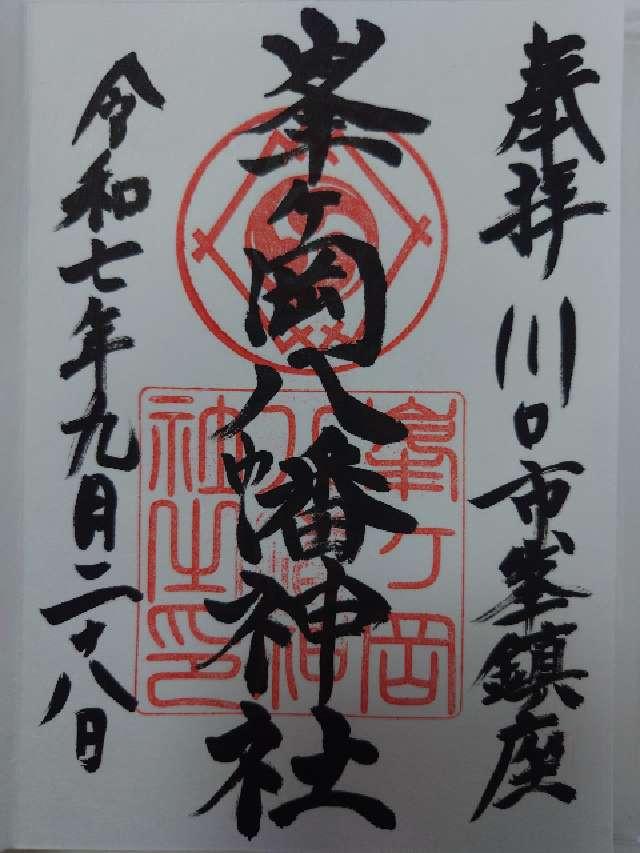 奉拝 川口市峯鎮座
峯ヶ岡八幡神社
峯ヶ岡
八幡神
社之印
令和七年九月二十八日